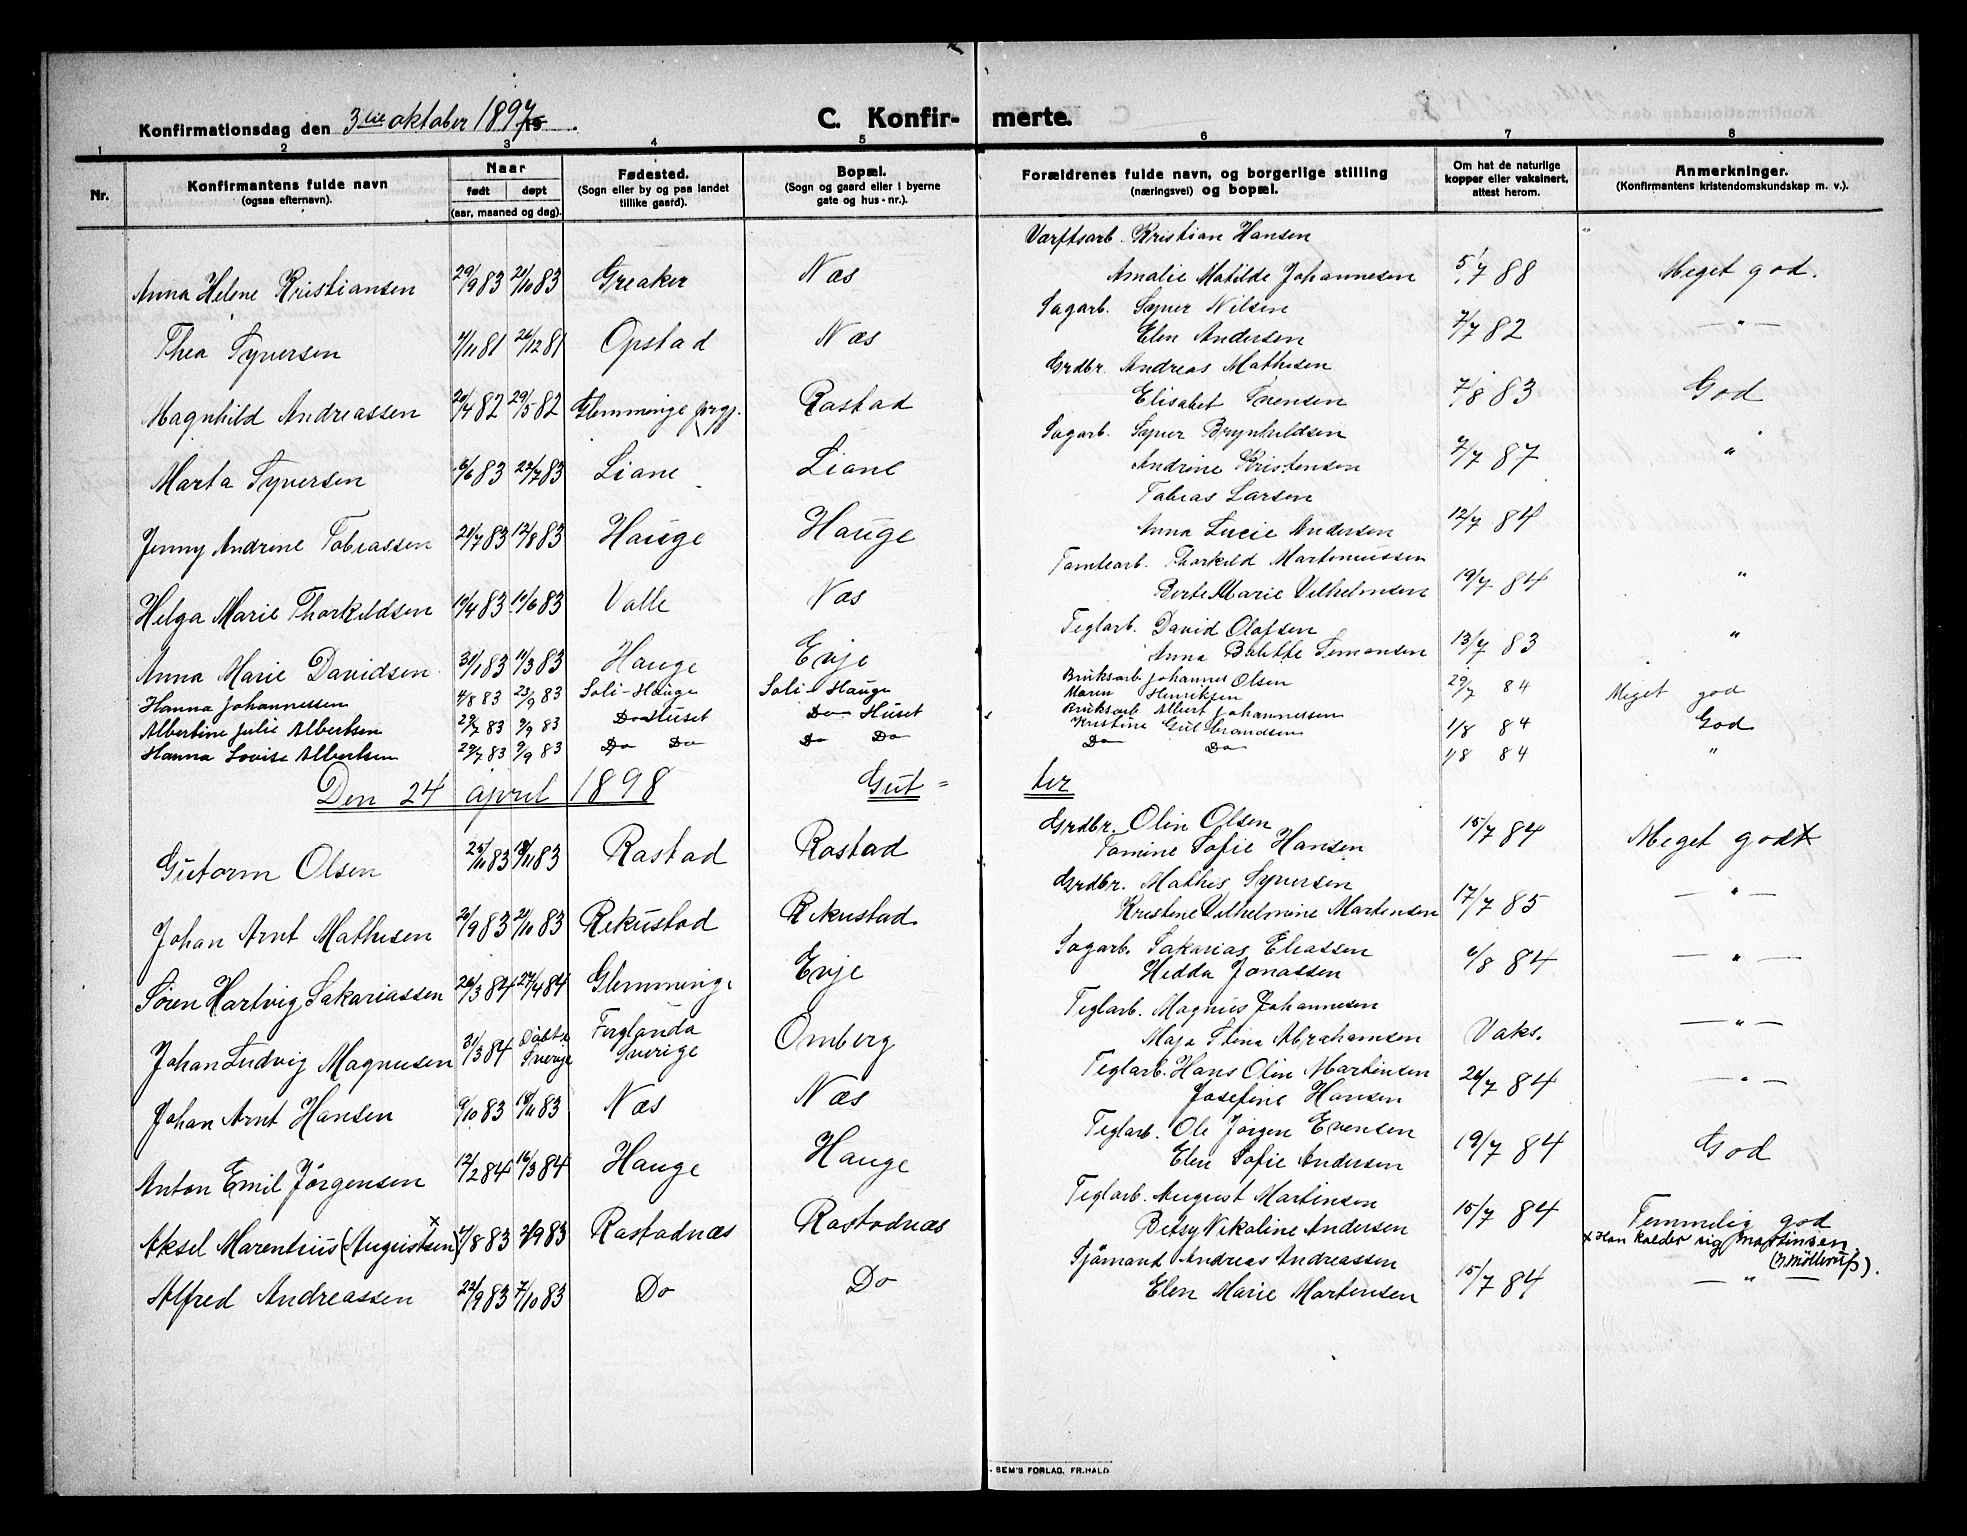 Konfirmationsdag den 3die oktober 1897
C. Konfir- merte.
1 2 3 4 5 6 7 8
Nr.
Konfirmantens fulde navn (ogsaa efternavn).
Naar født døpt (aar, maaned og dag).
Fødested. (Sogn eller by og paa landet tillike gaard).
Bopæl. (Sogn og gaard eller i byerne gate og hus-nr.).
Forældrenes fulde navn, og borgerlige stilling (næringsvei) og bopæl.
Om hat de naturlige kopper eller vaksinert, attest herom.
Anmerkninger. (Konfirmantens kristendomskundskap m. v.).
Varftsarb. Kristian Hansen
Anna Helene Kristiansen 29/9 83 21/10 83 Greaker Næs Amalie Matilde Johannesen 5/7 88 Meget god.
Sagarb. Syver Nilsen
Thea Syversen 7/11 81 26/12 81 Opstad Næs Elen Andersen 7/7 82 — " —
Grdbr. Andreas Mathisen
Magnhild Andreassen 20/4 82 29/5 82 Glemminge prgj. Rostad Elisabet Sørensen 7/8 83 God
Sagarb. Syver Brynhildsen
Marta Syversen 6/6 83 22/7 83 Liane Liane Andrine Kristensen 7/7 87 "
Tobias Larsen
Jenny Andrine Tobiassen 21/7 83 12/8 83 Hauge Hauge Anna Lucie Andersen 12/7 84
Tomtearb. Thorkild Martinussen
Helga Marie Thorkildsen 19/4 83 10/6 83 Valle Næs Berte Marie Vilhelmsen 19/7 84 "
Teglarb. David Olafsen
Anna Marie Davidsen 31/1 83 11/3 83 Hauge Evje Anna Bolette Simonsen 13/7 83 "
Bruksarb Johannes Olsen
Hanna Johannessen 4/8 83 23/9 83 Soli-Hauge Soli-Hauge Maren Henriksen 29/7 84 Meget god
Bruksarb Albert Johannessen
Albertine Julie Albertsen 29/7 83 9/9 83 Do Huset Do Huset Kristine Gulbrandsen 1/8 84 God
Hanna Lovise Albertsen 29/7 83 9/9 83 Do Do Do Do Do Do 1/8 84 "
Den 24 april 1898 Gut = ter
Grdbr. Olin Olsen
Gutorm Olsen 25/11 83 Rostad Rostad Tomine Sofie Hansen 15/7 84 Meget godt
Grdbr. Mathis Syversen
Johan Arnt Mathisen 20/9 83 21/10 83 Rekustad Rekustad Kristine Vilhelmine Martinsen 17/7 85 — " —
Sagarb. Sakarias Eliassen
Søren Hartvig Sakariassen 26/3 84 27/4 84 Glemminge Evje Hedda Jonassen 6/8 84 — " —
Teglarb. Magnus Johannesen
Johan Ludvig Magnusen 31/3 84 Døbt i Sverige Ferglanda Sverige Omberg Maja Stina Abrahamsen Vaks. — " —
Teglarb. Hans Olin Martinsen
Johan Arnt Hansen 9/10 83 18/11 83 Næs Næs Josefine Hansen 26/7 84 — " —
Teglarb. Ole Jørgen Evensen
Anton Emil Jørgensen 12/2 84 16/3 84 Hauge Hauge Elen Sofie Andersen 19/7 84 God
Teglarb. August Martinsen
Aksel Marentius (Augustsen)× 7/8 83 2/9 83 Rostadnæs Rostadnæs Betsy Nikoline Andersen 15/7 84 Temmelig god
× Han kalder sig Martinsen (r. Møllerup).
Sjømand Andreas Andreassen
Alfred Andreassen 22/9 83 7/10 83 Do Do Elen Marie Martinsen 15/7 84 — " —
SEM'S FORLAG, FR.HALD